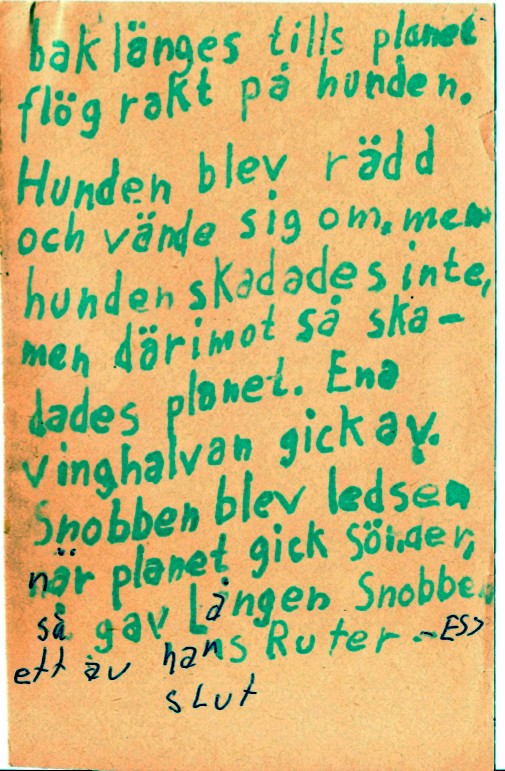 bak länges tills planet
flög rakt på hunden.
Hunden blev rädd
och vände sig om. men
hunden skadades inte,
men därimot så ska-
dades planet. Ena
vinghalvan gick av.
Snobben blev ledsen
när planet gick sönder,
så gav Lången Snobben
ett av hans Ruter - ESS
slut